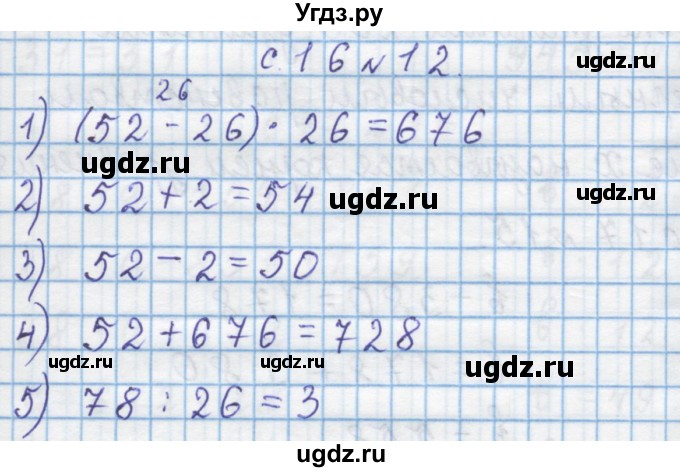 Угдз.ру
ugdz.ru
с. 16 N 12.
26
1) (52 - 26) · 26 = 676
ugdz.ru ugdz.ru
2) 52 + 2 = 54
ugdz.ru ugdz.ru
3) 52 - 2 = 50
4) 52 + 676 = 728
ugdz.ru ugdz.ru ugdz.ru
5) 78 : 26 = 3
ugdz.ru ugdz.ru